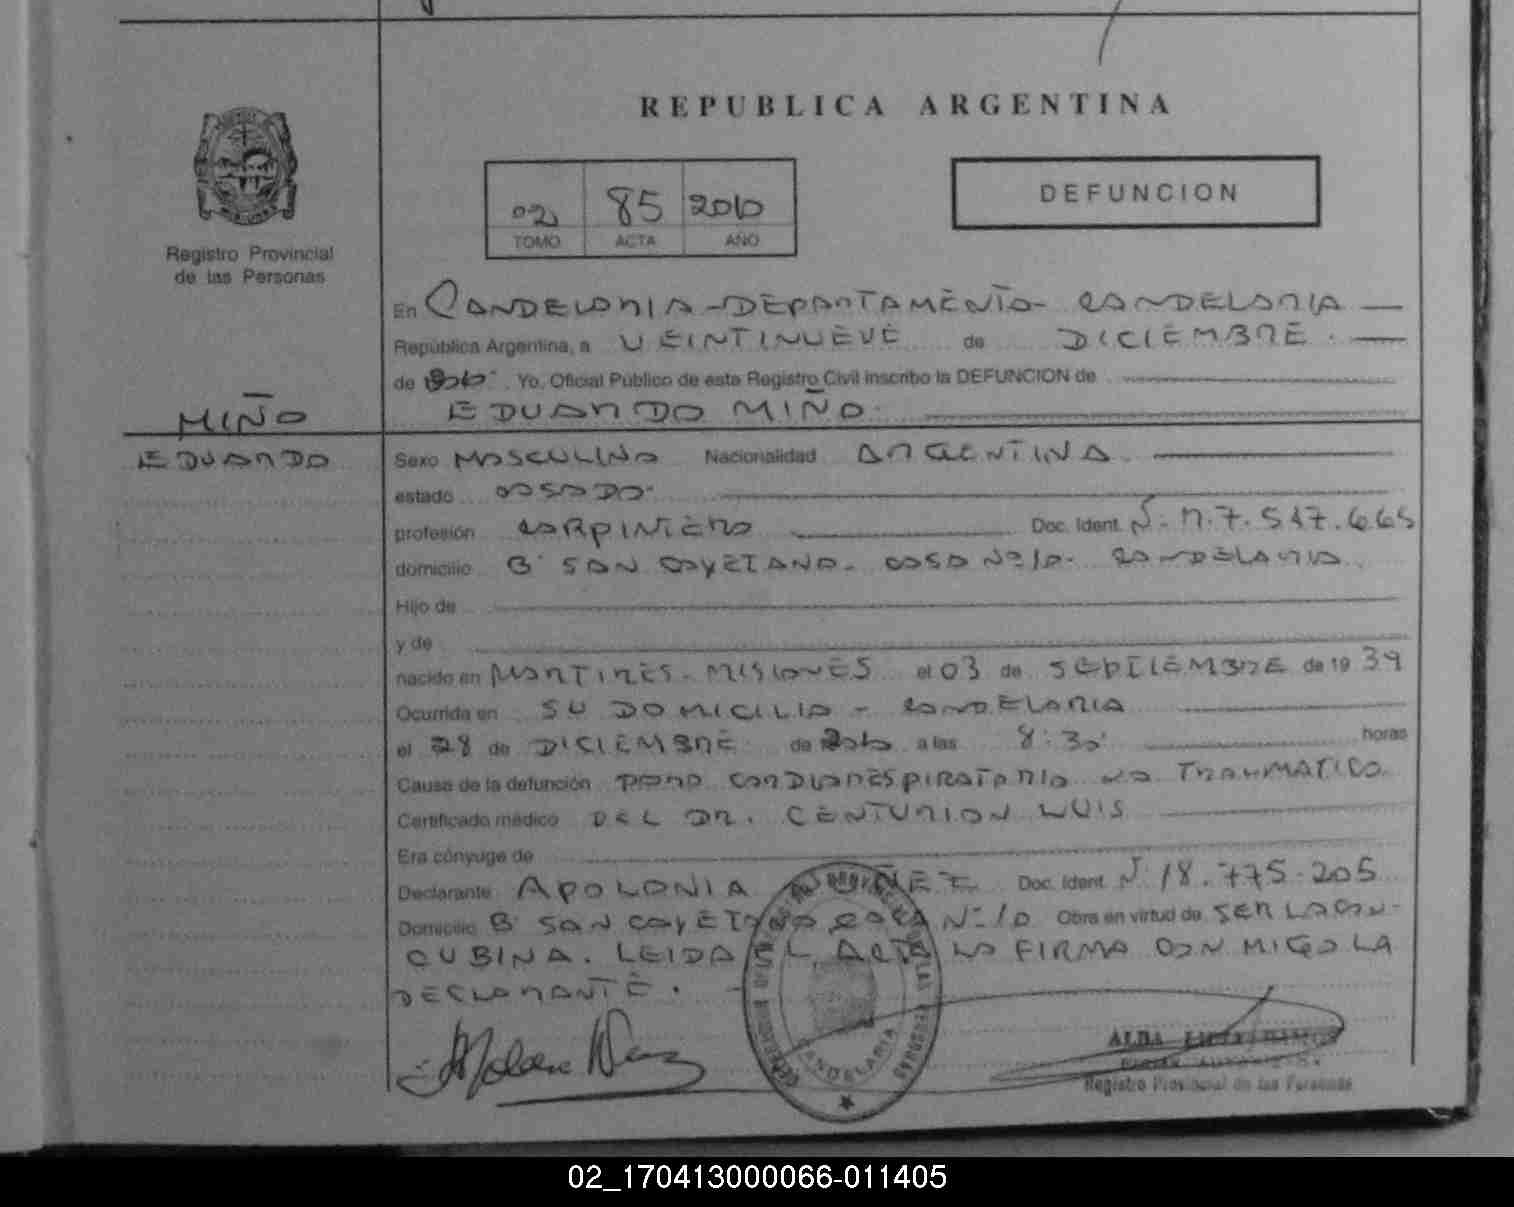 REPUBLICA ARGENTINA
02 85 2010
TOMO ACTA AÑO
DEFUNCION
Registro Provincial
de las Personas
En CANDELARIA - DEPARTAMENTO - CANDELARIA
República Argentina, a VEINTINUEVE de DICIEMBRE.
de 2010. Yo, Oficial Público de este Registro Civil inscribo la DEFUNCION de
MIÑO EDUARDO MIÑO.
EDUARDO
Sexo MASCULINO Nacionalidad ARGENTINA
estado CASADO.
profesión CARPINTERO Doc. Ident. Nº. M.7.547.665
domicilio Bº SAN CAYETANO. CASA Nº 10. CANDELARIA
Hijo de
y de
nacido en MARTIRES - MISIONES el 03 de SEPTIEMBRE de 19 39
Ocurrida en SU DOMICILIO - CANDELARIA
el 28 de DICIEMBRE de 2010 a las 8:30 horas
Causa de la defunción PARO CARDIORESPIRATORIO NO TRAUMATICO.
Certificado médico DEL DR. CENTURION LUIS
Era cónyuge de
Declarante APOLONIA Doc. Ident. Nº 18.775.205
Domicilio Bº SAN CAYETANO CASA Nº 10 Obra en virtud de SER LA CON-
CUBINA. LEIDA EL ACTA LA FIRMA CON MIGO LA
DECLARANTE.
CANDELARIA
ALBA
Registro Provincial de las Personas
02_170413000066-011405